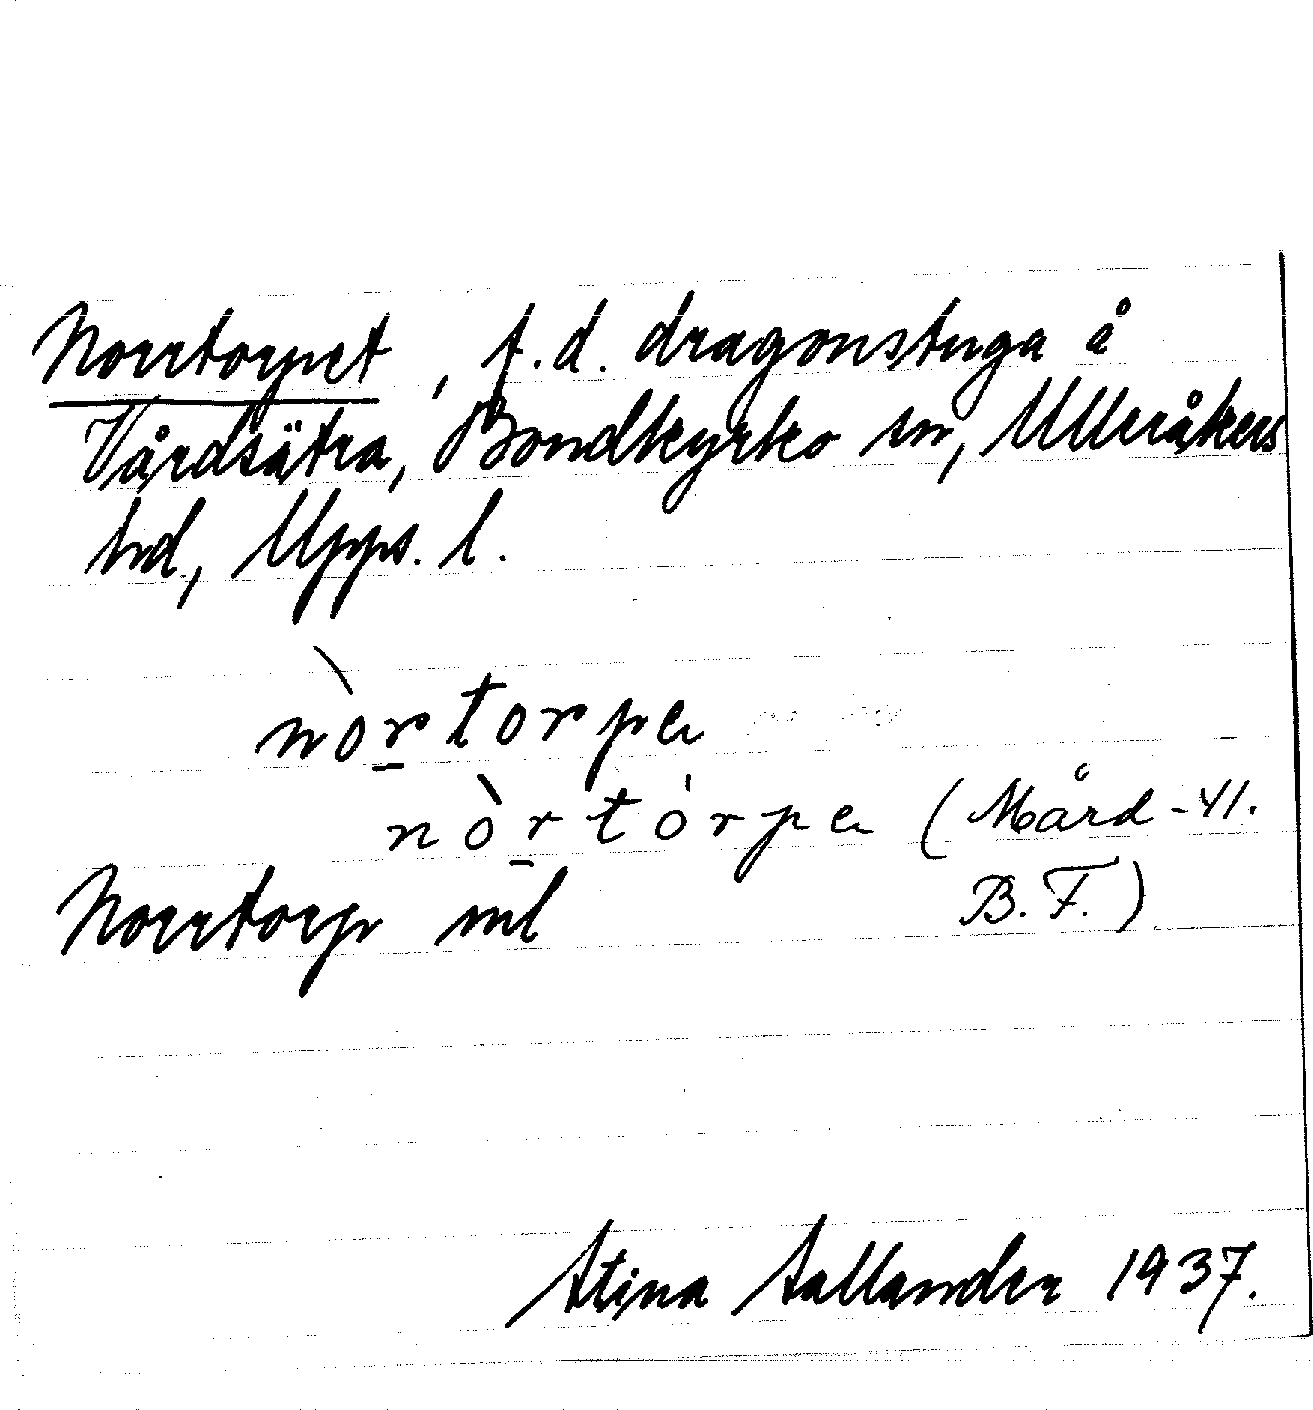 Norrtorpet, f.d. dragonstuga å
Vårdsätra, Bondkyrko sn, Ulleråkers
hd, Upps. l.
nòr̲torpa
nòr̲tórpa (Mård -41.
B.F.)
Norrtorp ml
Stina Sallander 1937.